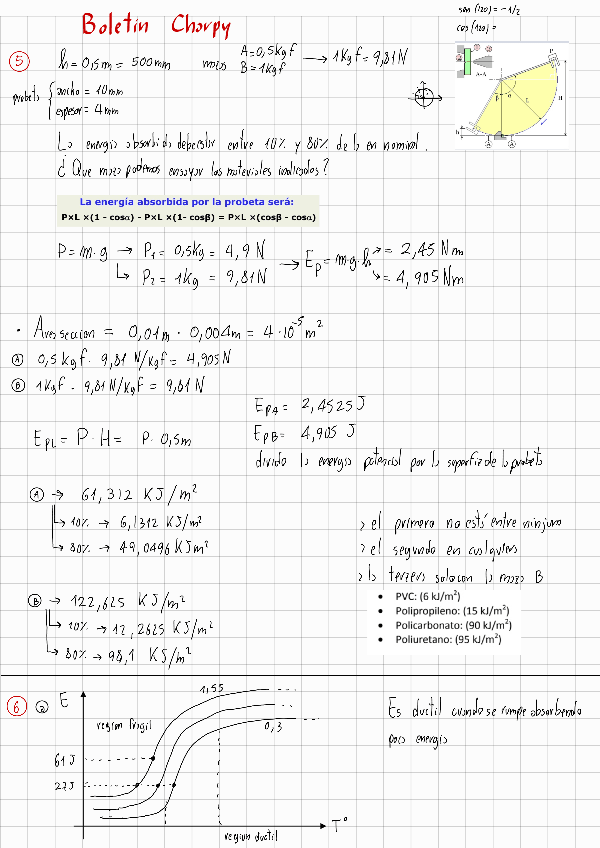 Boletín Charpy
sen (120) = -1/2
cos (120) =
5
h = 0,5m = 500mm
mazas A = 0,5kgf → 1kgf = 9,81 N
B = 1kgf
probeta ancho = 10mm
espesor = 4mm
La energia absorbida debe estar entre 10% y 80% de la en nominal.
¿Que maza podemos ensayar los materiales indicados?
La energía absorbida por la probeta será:
P×L ×(1 - cosα) - P×L ×(1- cosβ) = P×L ×(cosβ - cosα)
P = m·g → P1 = 0,5kg = 4,9 N
P2 = 1kg = 9,81N
→ Ep = m·g·h = 2,45 Nm
= 4,905 Nm
· Area seccion = 0,01m · 0,004m = 4·10⁻⁵ m²
A 0,5 kgf · 9,81 N/kgf = 4,905N
B 1kgf · 9,81 N/kgf = 9,81N
EpA = 2,4525 J
EpB = 4,905 J
EpL = P·H = P·0,5m
divido la energia potencial por la superfize de la probeta
A → 61,312 KJ/m²
10% → 6,1312 KJ/m²
80% → 49,0496 KJm²
> el primero no está entre ninjuno
> el segundo en cualquiera
> lo tercero solo con la maza B
B → 122,625 KJ/m²
10% → 12,2625 KJ/m²
80% → 98,1 KJ/m²
• PVC: (6 kJ/m²)
• Polipropileno: (15 kJ/m²)
• Policarbonato: (90 kJ/m²)
• Poliuretano: (95 kJ/m²)
6 a E
1,55
region fragil
0,3
61 J
27 J
T°
region ductil
Es ductil cuando se rumpe absorbendo
poca energia